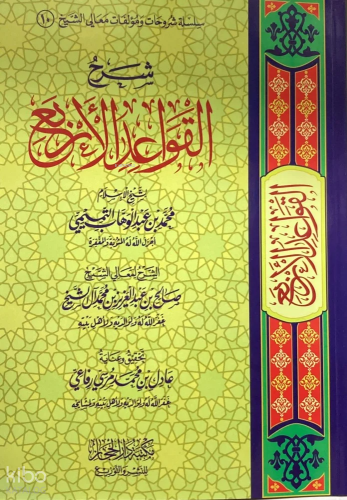 سلسلة شروحات ومؤلفات معالي الشيخ (١٠)
شرح
القواعد الأربع
لشيخ الإسلام
محمد بن عبد الوهاب التميمي
أجزل الله له المثوبة والمغفرة
الشرح لمعالي الشيخ
صالح بن عبد العزيز بن محمد آل الشيخ
غفر الله له ولوالديه ولأهل بيته
بتحقيق وعناية
عادل بن محمد مرسي رفاعي
غفر الله له ولوالديه ولأهل بيته ومشايخه
مكتبة دار الحجاز
للنشر والتوزيع
القواعد الأربع
kibo